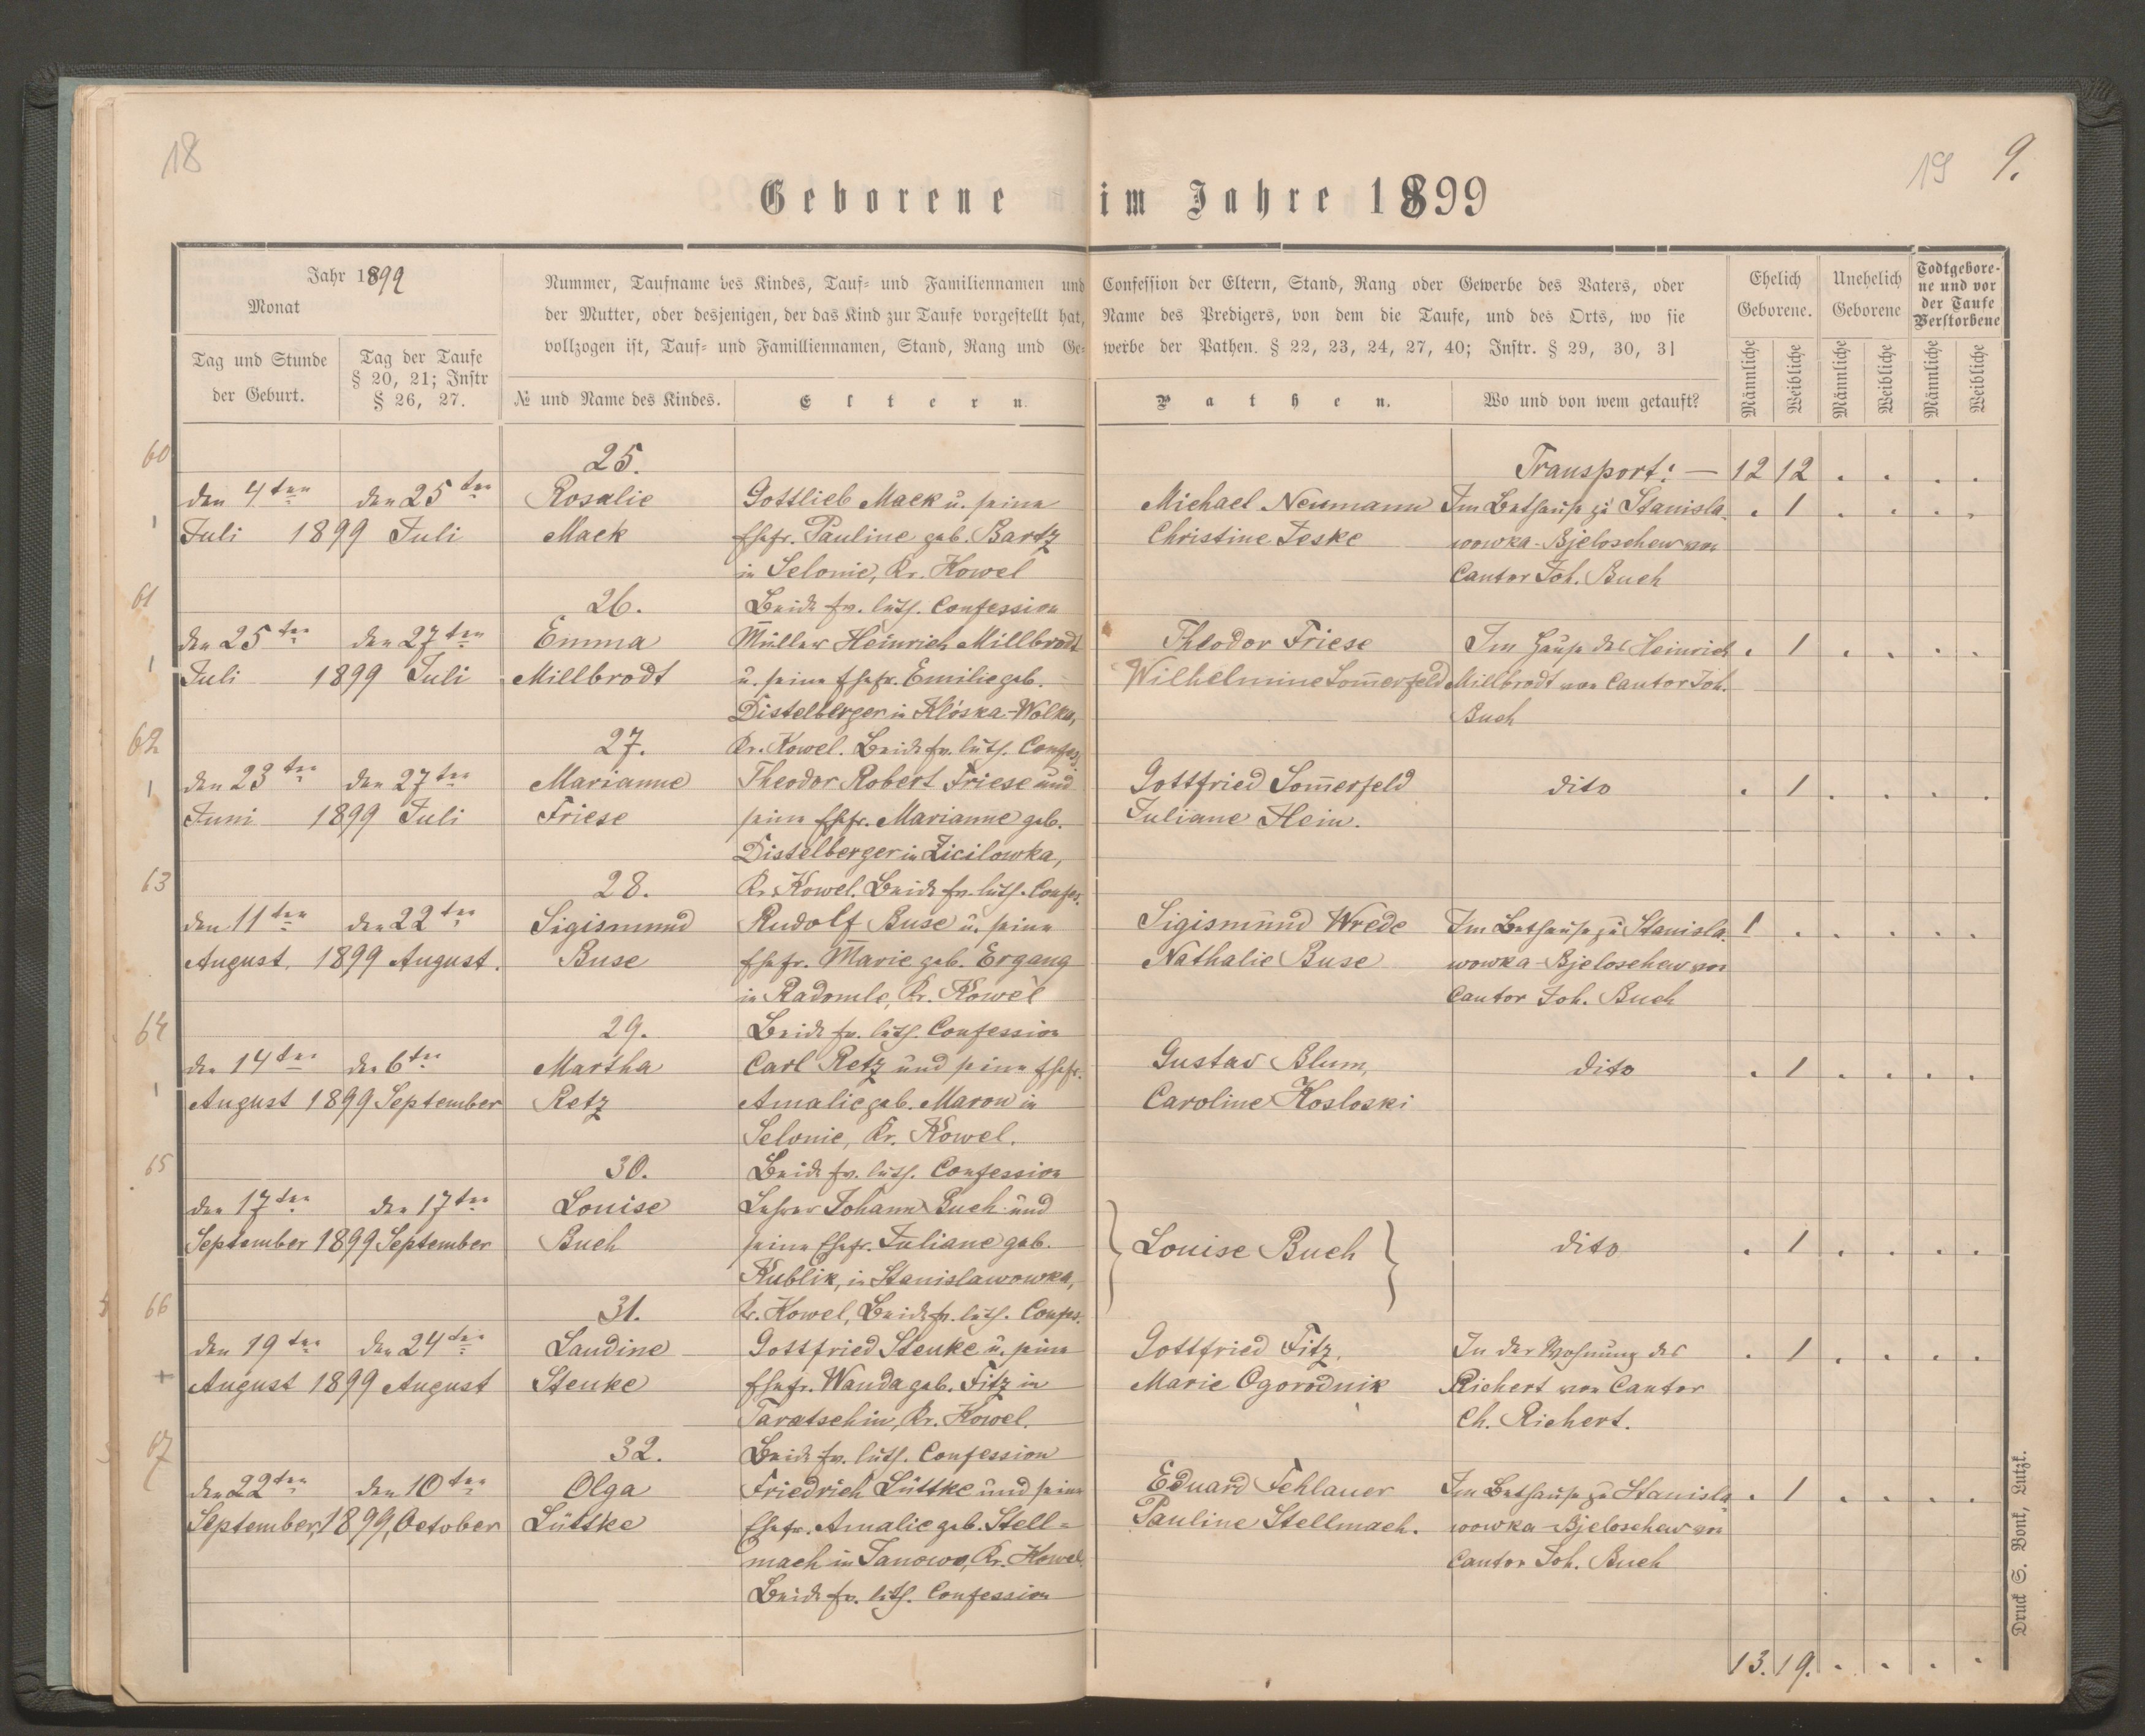 18
19 9.
Geborene im Jahre 1899
Jahr 1899
Monat
Tag und Stunde
der Geburt.
Tag der Taufe
§ 20, 21; Instr
§ 26, 27.
Nummer, Taufname des Kindes, Tauf- und Familiennamen und
der Mutter, oder desjenigen, der das Kind zur Taufe vorgestellt hat,
vollzogen ist, Tauf- und Familliennamen, Stand, Rang und Ge-
№ und Name des Kindes.
Eltern.
Confession der Eltern, Stand, Rang oder Gewerbe des Vaters, oder
Name des Predigers, von dem die Taufe, und des Orts, wo sie
werbe der Pathen. § 22, 23, 24, 27, 40; Instr. § 29, 30, 31
Pathen.
Wo und von wem getauft?
Ehelich
Geborene.
Unehelich
Geborene
Todtgebore-
ne und vor
der Taufe
Verstorbene
Männliche
Weibliche
Männliche
Weibliche
Männliche
Weibliche
Transport: — 12 12 . . . .
60
25.
den 4ten den 25ten Rosalie Gottlieb Mack u. seine Michael Neumann Im Bethause zu Stanisla- . 1 . . . .
Juli 1899 Juli Mack Ehefr. Pauline geb. Bartz Christine Jeske wowka-Bjeloschew von
in Selonie, Kr. Kowel Cantor Joh. Buch
61
26. Beide ev. luth. Confession
den 25ten den 27ten Emma Müller Heinrich Millbrodt Theodor Friese Im Hause des Heinrich . 1 . . . .
Juli 1899 Juli Millbrodt u. seine Ehefr. Emilie geb. Wilhelmine Som̄erfeld Millbrodt von Cantor Joh.
Distelberger in Klóska-Wolka, Buch
62
27. Kr. Kowel. Beide ev. luth. Confes.
den 23ten den 27ten Marianne Theodor Robert Friese und Gottfried Som̄erfeld dito . 1 . . . .
Juni 1899 Juli Friese seine Ehefr. Marianne geb. Juliane Hein.
Distelberger in Zicilowka,
63
28. Kr. Kowel. Beide ev. luth. Confes.
den 11ten den 22ten Sigismund Rudolf Buse u. seine Sigismund Wrede Im Bethause zu Stanisla- 1 . . . . .
August. 1899 August. Buse Ehefr. Marie geb. Ergang Nathalie Buse wowka-Bjeloschew von
in Radomle, Kr. Kowel Cantor Joh. Buch
64
29. Beide ev. luth. Confession
den 14ten den 6ten Martha Carl Retz und seine Ehefr. Gustav Blum, dito . 1 . . . .
August 1899 September Retz Amalie geb. Marow in Caroline Kosloski
Selonie, Kr. Kowel.
65
30. Beide ev. luth. Confession
den 17ten den 17ten Louise Lehrer Johann Buch und
September 1899 September Buch seine Ehefr. Juliane geb. Louise Buch dito . 1 . . . .
Kublik, in Stanislawowka,
66
31. Kr. Kowel, Beide ev. luth. Confes.
den 19ten den 24ten Laudine Gottfried Stenke u. seine Gottfried Fitz, In der Wohnung des . 1 . . . .
August 1899 August Stenke Ehefr. Wanda geb. Fitz in Marie Ogorodnik Richert von Cantor
Taratschin, Kr. Kowel. Ch. Richert.
67
32. Beide ev. luth. Confession
den 22ten den 10ten Olga Friedrich Lüttke und seine Eduard Fehlauer Im Bethause zu Stanisla- . 1 . . . .
September, 1899, October Lüttke Ehefr. Amalie geb. Stell= Pauline Stellmach. wowka-Bjeloschew von
mach in Janowo, Kr. Kowel. Cantor Joh. Buch
Beide ev. luth. Confession
13. 19. . . . .
Druck S. Bonk, Lutzk.